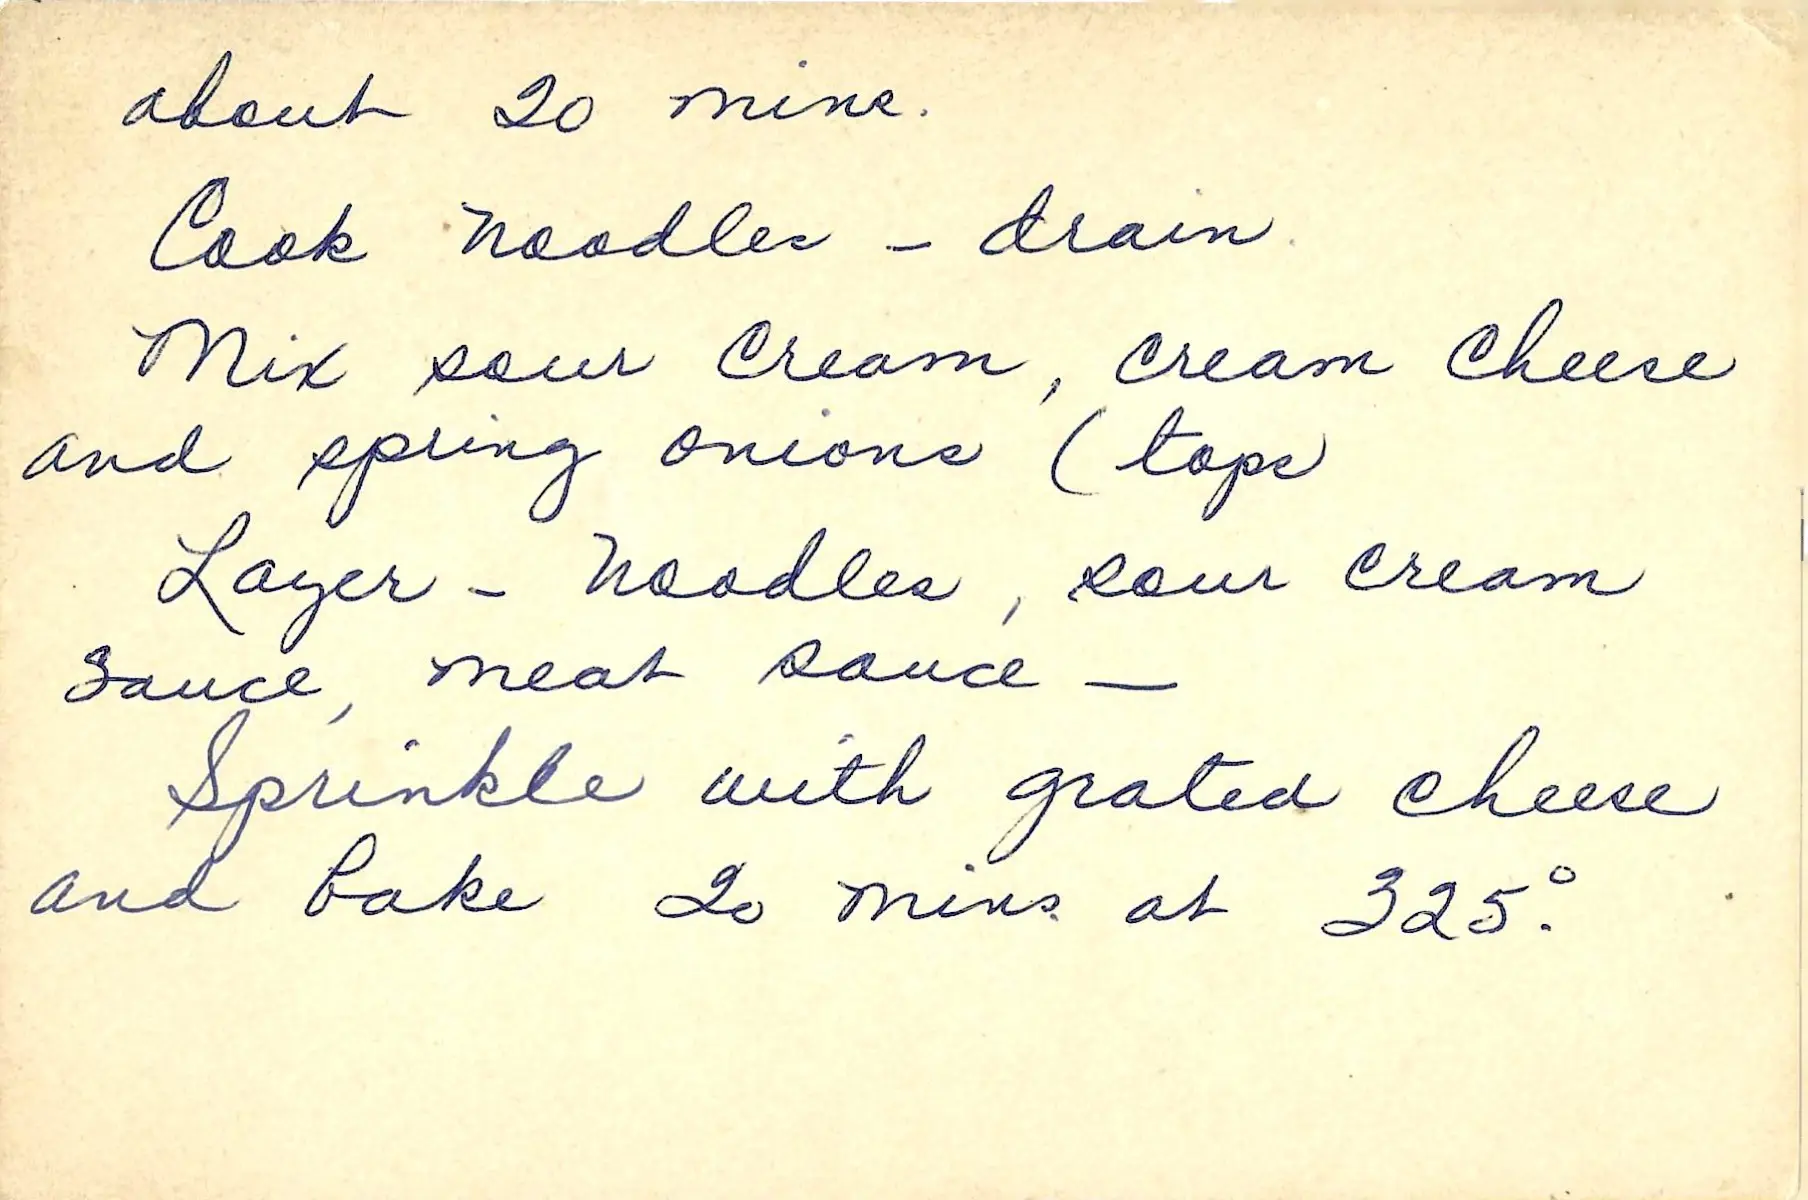 about 20 mins.
Cook noodles - drain.
Mix sour cream, cream cheese
and spring onions (tops
Layer - noodles, sour cream
sauce, meat sauce —
Sprinkle with grated cheese
and bake 20 mins. at 325°.